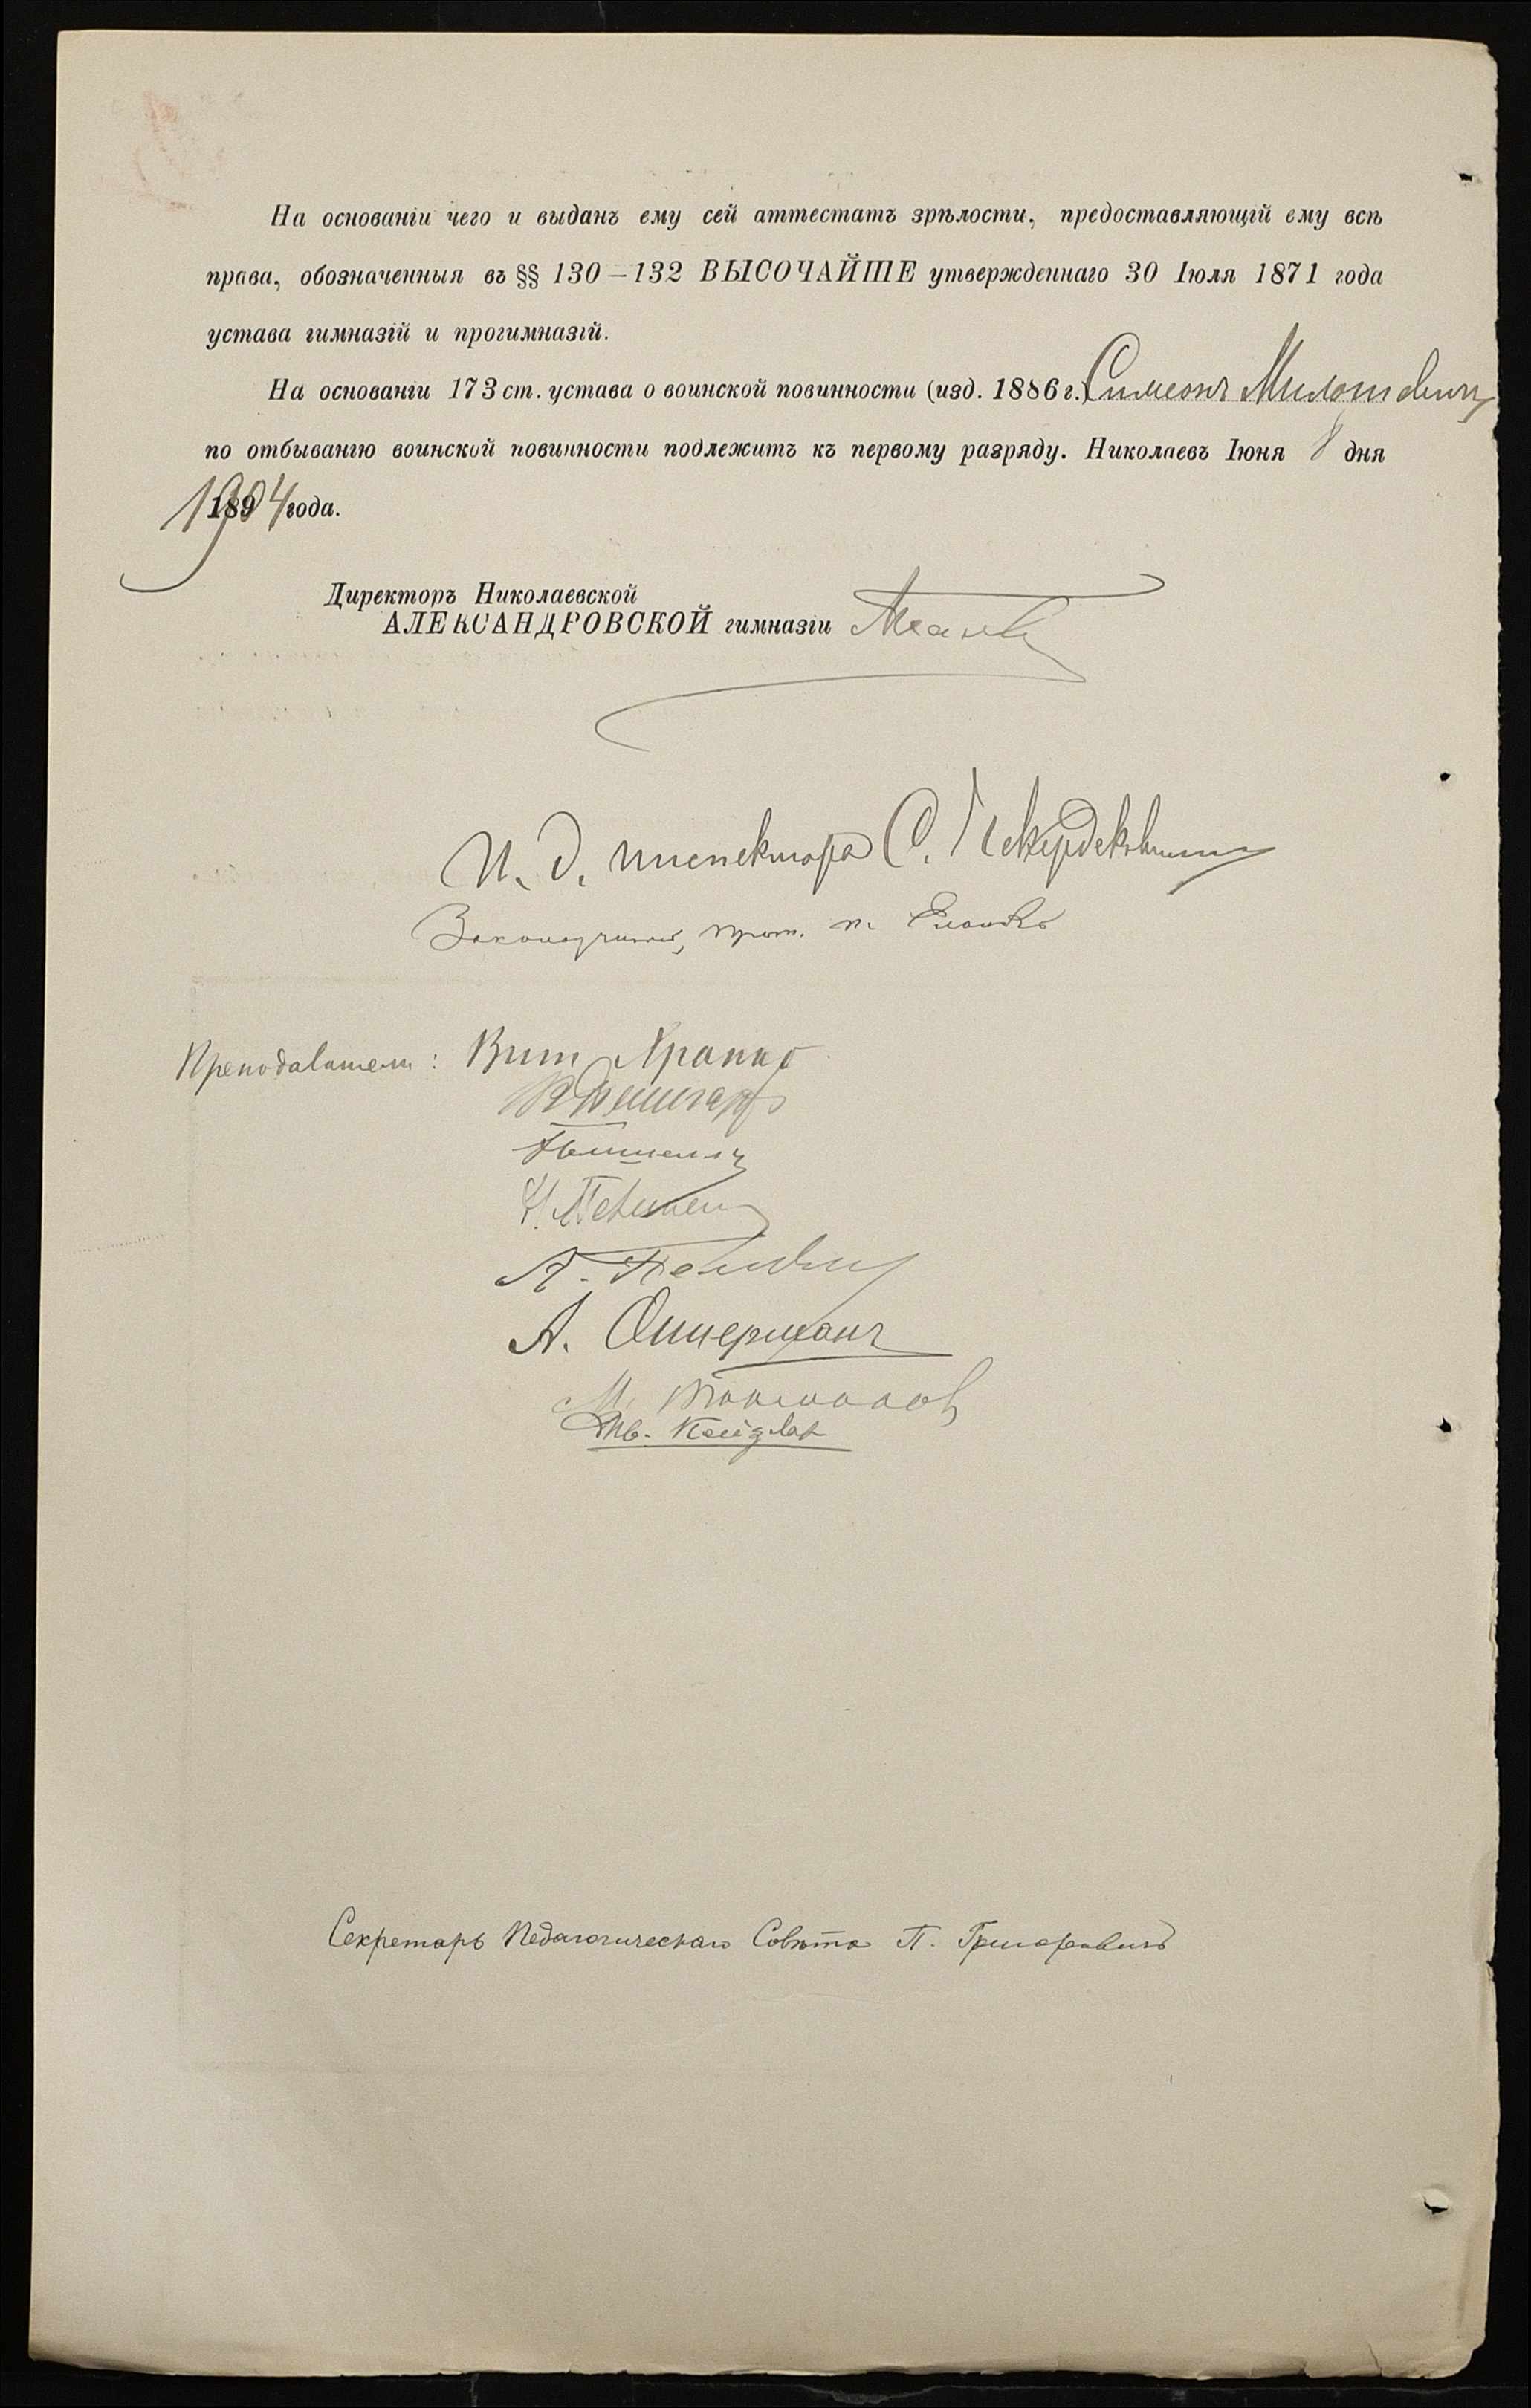 На основаніи чего и выданъ ему сей аттестатъ зрѣлости, предоставляющій ему всѣ
права, обозначенныя въ §§ 130—132 ВЫСОЧАЙШЕ утвержденнаго 30 Іюля 1871 года
устава гимназій и прогимназій.
На основаніи 173 ст. устава о воинской повинности (изд. 1886 г.) Симеонъ Милошевичъ
по отбыванію воинской повинности подлежитъ къ первому разряду. Николаевъ Іюня 8 дня
1904 года.
Директоръ Николаевской
АЛЕКСАНДРОВСКОЙ гимназіи
И. д. инспектора С.
Законоучитель, прот.
Преподаватели: Вит. Храпко
А. Опперманъ
Секретарь Педагогическаго Совѣта П. Григоровичъ